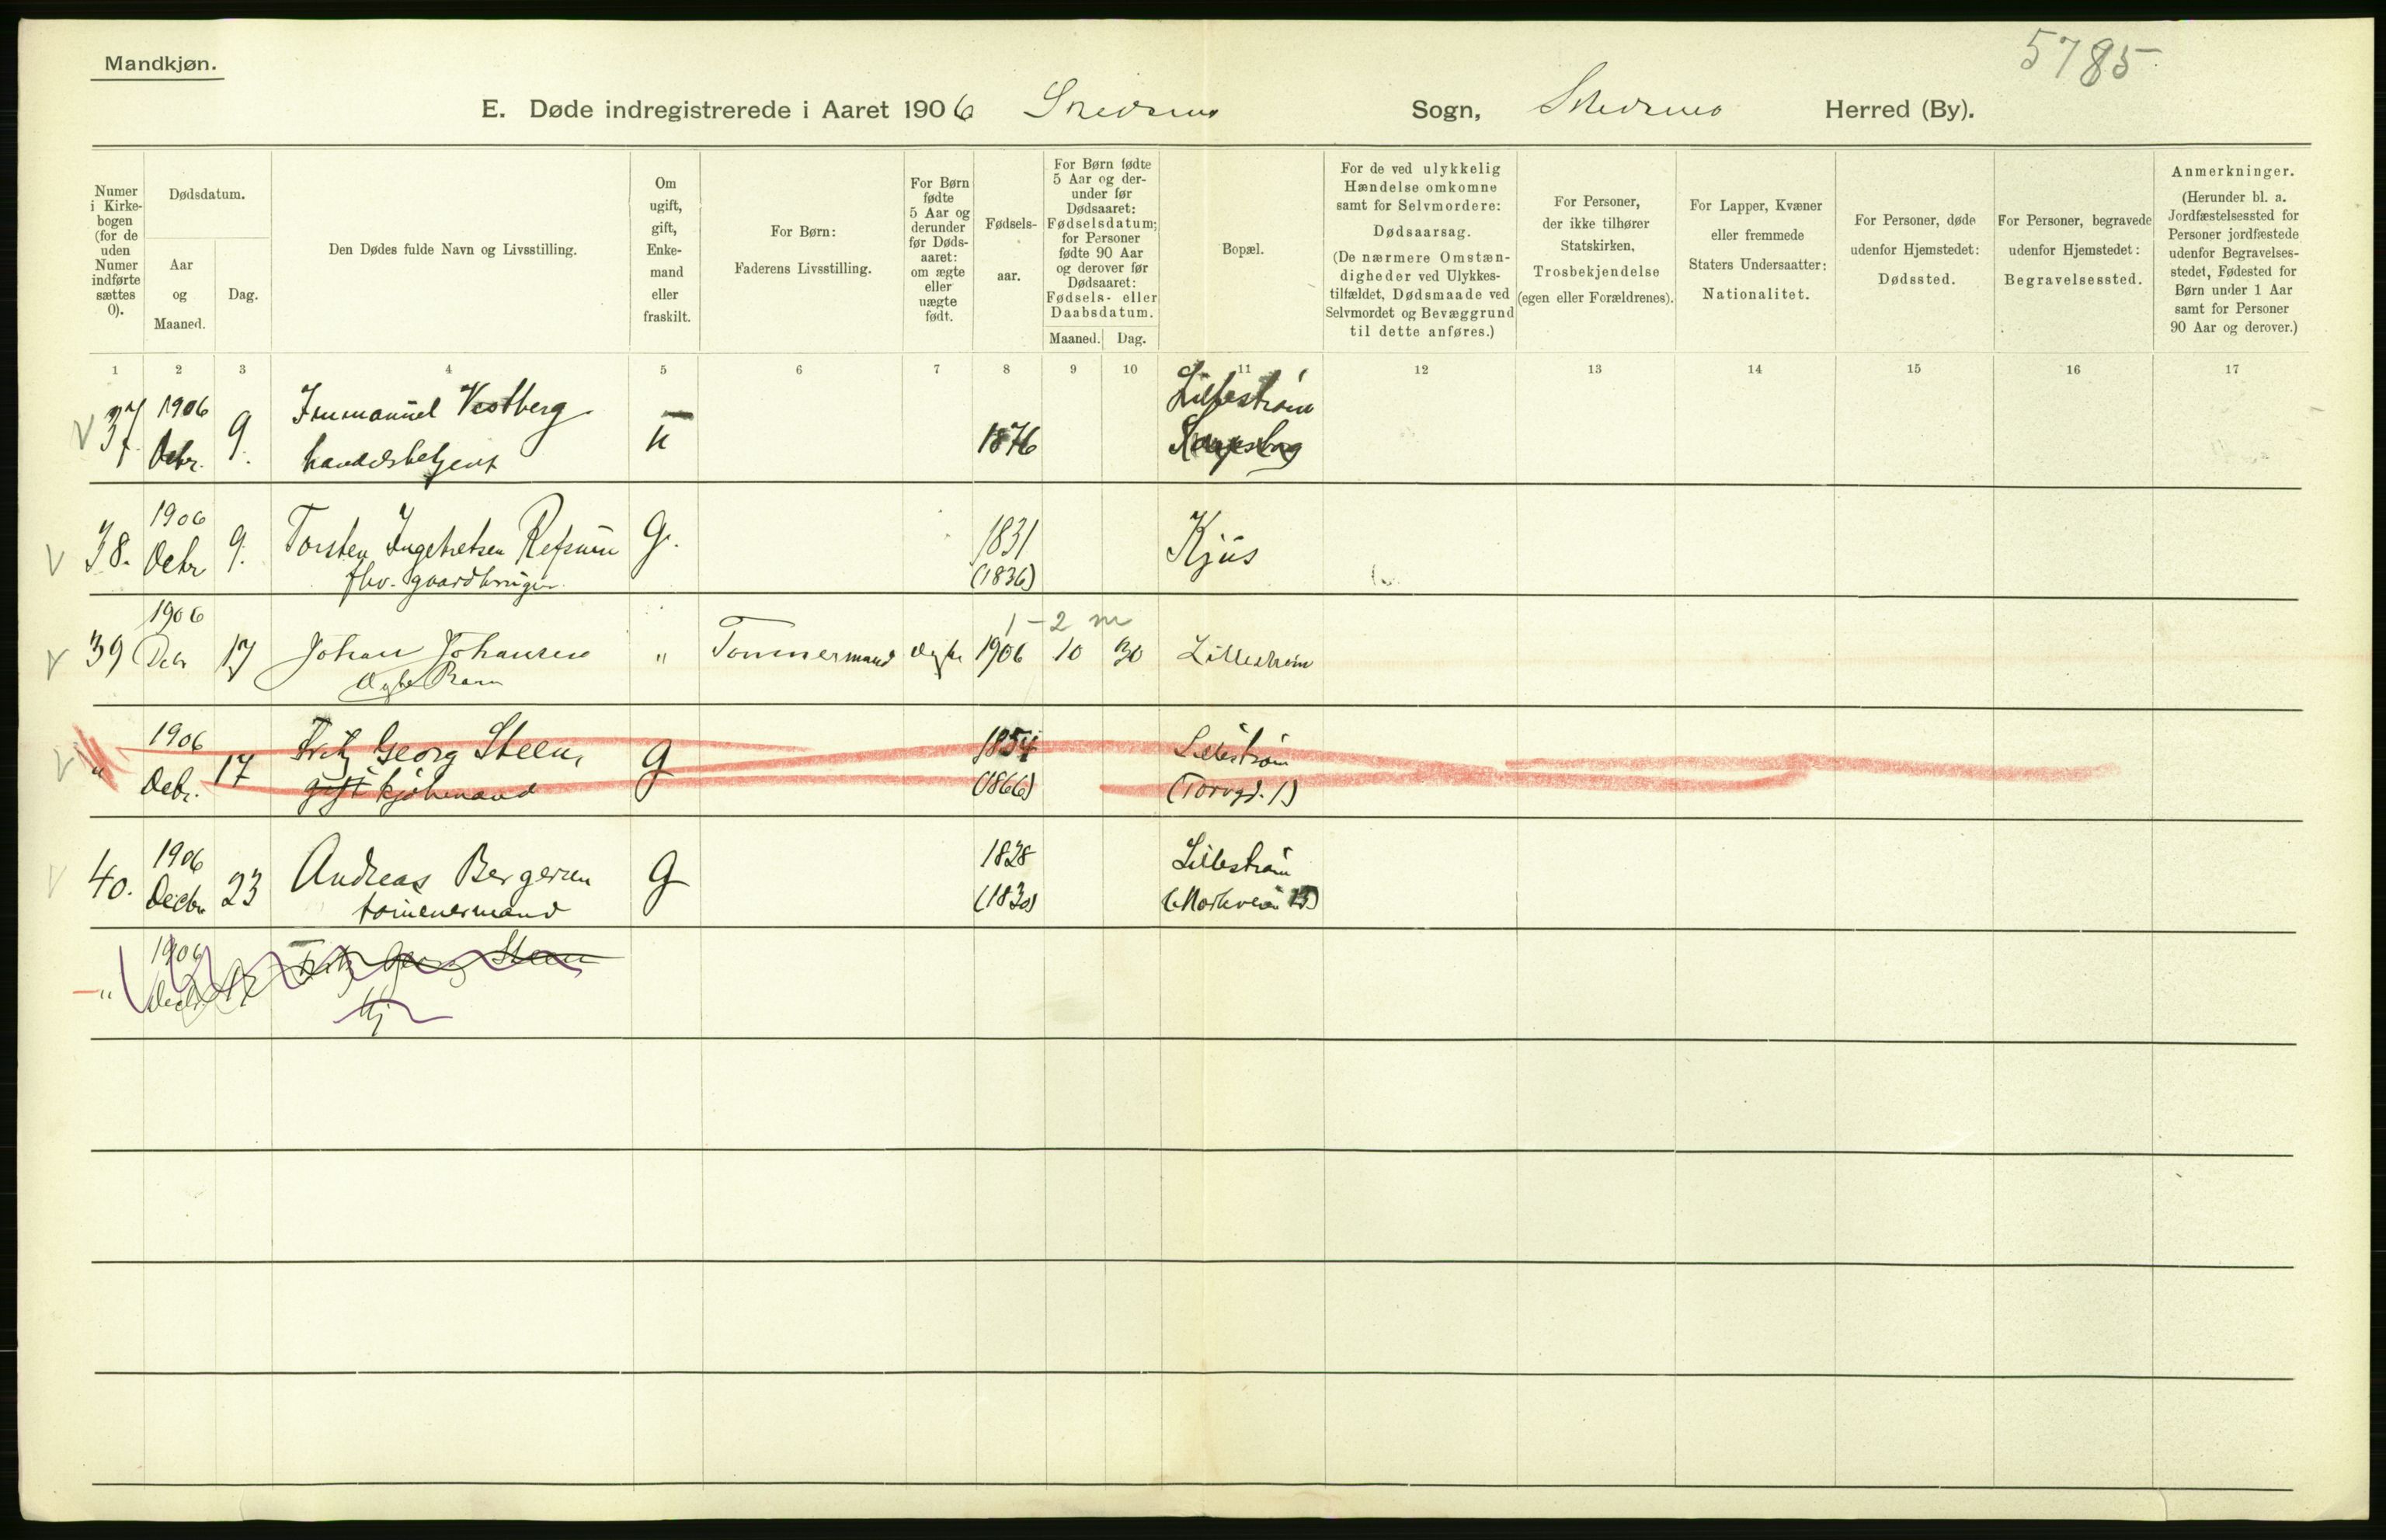 Mandkjøn.
5785
E. Døde indregistrerede i Aaret 1906 Skedsmo Sogn, Skedsmo Herred (By).
Numer i Kirkebogen (for de uden Numer indførte sættes 0).
Dødsdatum.
Aar og Maaned.
Dag.
Den Dødes fulde Navn og Livsstilling.
Om ugift, gift, Enkemand eller fraskilt.
For Børn:
Faderens Livsstilling.
For Børn fødte 5 Aar og derunder før Dødsaaret: om ægte eller uægte født.
Fødselsaar.
For Børn fødte 5 Aar og derunder før Dødsaaret: Fødselsdatum; for Personer fødte 90 Aar og derover før Dødsaaret: Fødsels- eller Daabsdatum.
Maaned. Dag.
Bopæl.
For de ved ulykkelig Hændelse omkomne samt for Selvmordere:
Dødsaarsag.
(De nærmere Omstændigheder ved Ulykkestilfældet, Dødsmaade ved Selvmordet og Bevæggrund til dette anføres.)
For Personer, der ikke tilhører Statskirken,
Trosbekjendelse
(egen eller Forældrenes).
For Lapper, Kvæner eller fremmede Staters Undersaatter:
Nationalitet.
For Personer, døde udenfor Hjemstedet:
Dødssted.
For Personer, begravede udenfor Hjemstedet:
Begravelsessted.
Anmerkninger.
(Herunder bl. a. Jordfæstelsessted for Personer jordfæstede udenfor Begravelsesstedet, Fødested for Børn under 1 Aar samt for Personer 90 Aar og derover.)
1 2 3 4 5 6 7 8 9 10 11 12 13 14 15 16 17
1906 Immanuel Vestberg Lillestrøm
37. Debr. 9. handelsbetjent 1876
1906
38. Debr 9. Torsten Ingebretsen Refsum G. 1831 Kjus
fhv. gaardbruger (1836)
1906 1-2 m
39 Debr 17 Johan Johansen " Tømmermand ægte 1906 10 30 Lillestrøm
ægte Barn
1906 Fritz Georg Steen, 1854 Lillestrøm
" Debr. 17 gift kjøbmand G (1866) (Torvgd. 1)
1906 Andreas Bergersen 1828 Lillestrøm
40. Decbr 23 tømmermand G (1830)
1906 Fritz Georg Steen
" Decbr 17 Kj